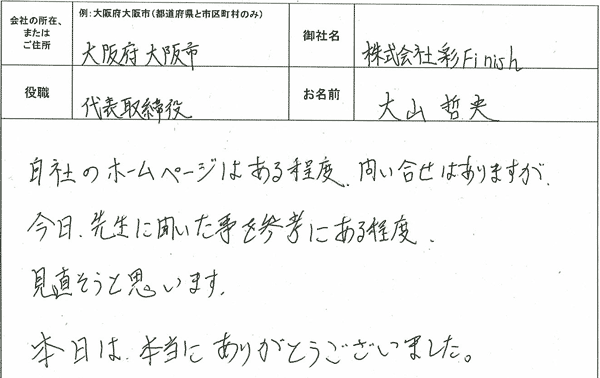 会社の所在、
または
ご住所
例：大阪府大阪市（都道府県と市区町村のみ）
大阪府大阪市
御社名
株式会社彩Finish
役職
代表取締役
お名前
大山 哲央
自社のホームページはある程度、問い合せはありますが、
今日、先生に聞いた事を参考にある程度、
見直そうと思います。
本日は、本当にありがとうございました。